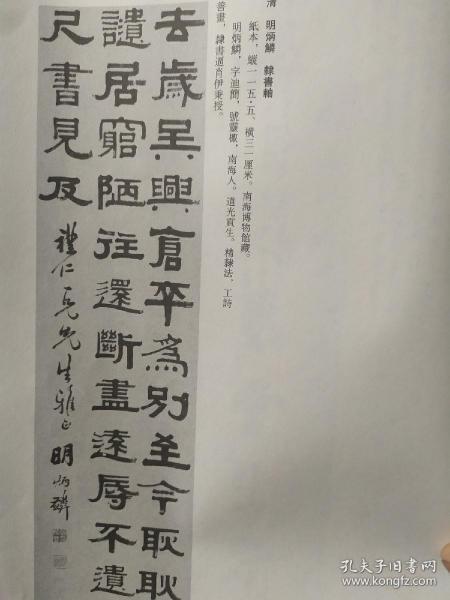 清　明炳麟　隸書軸
紙本，縱一一五·五、橫三一厘米。南海博物館藏。
明炳麟，字迪簡，號靈樵，南海人。道光貢生。精隸法，工詩
善畫，隸書逼肖伊秉授。
去歲吳興倉卒為別至今耿耿
譴居窮陋往還斷盡遠辱不遺
尺書見及
禮仁 先生雅正 明炳麟
孔夫子旧书网
www.kongfz.com